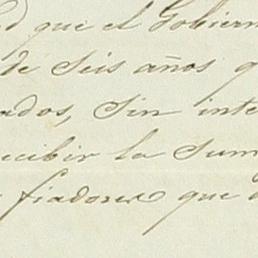 que el Gobiern
de seis años q
ados, sin inte
ecibir la sum
fiadores que